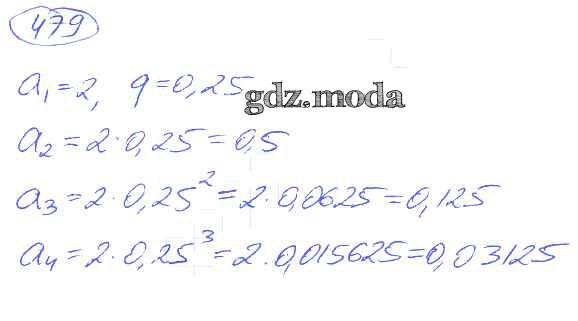 479
a₁ = 2, q = 0,25
gdz.moda
a₂ = 2 · 0,25 = 0,5
a₃ = 2 · 0,25² = 2 · 0,0625 = 0,125
a₄ = 2 · 0,25³ = 2 · 0,015625 = 0,03125